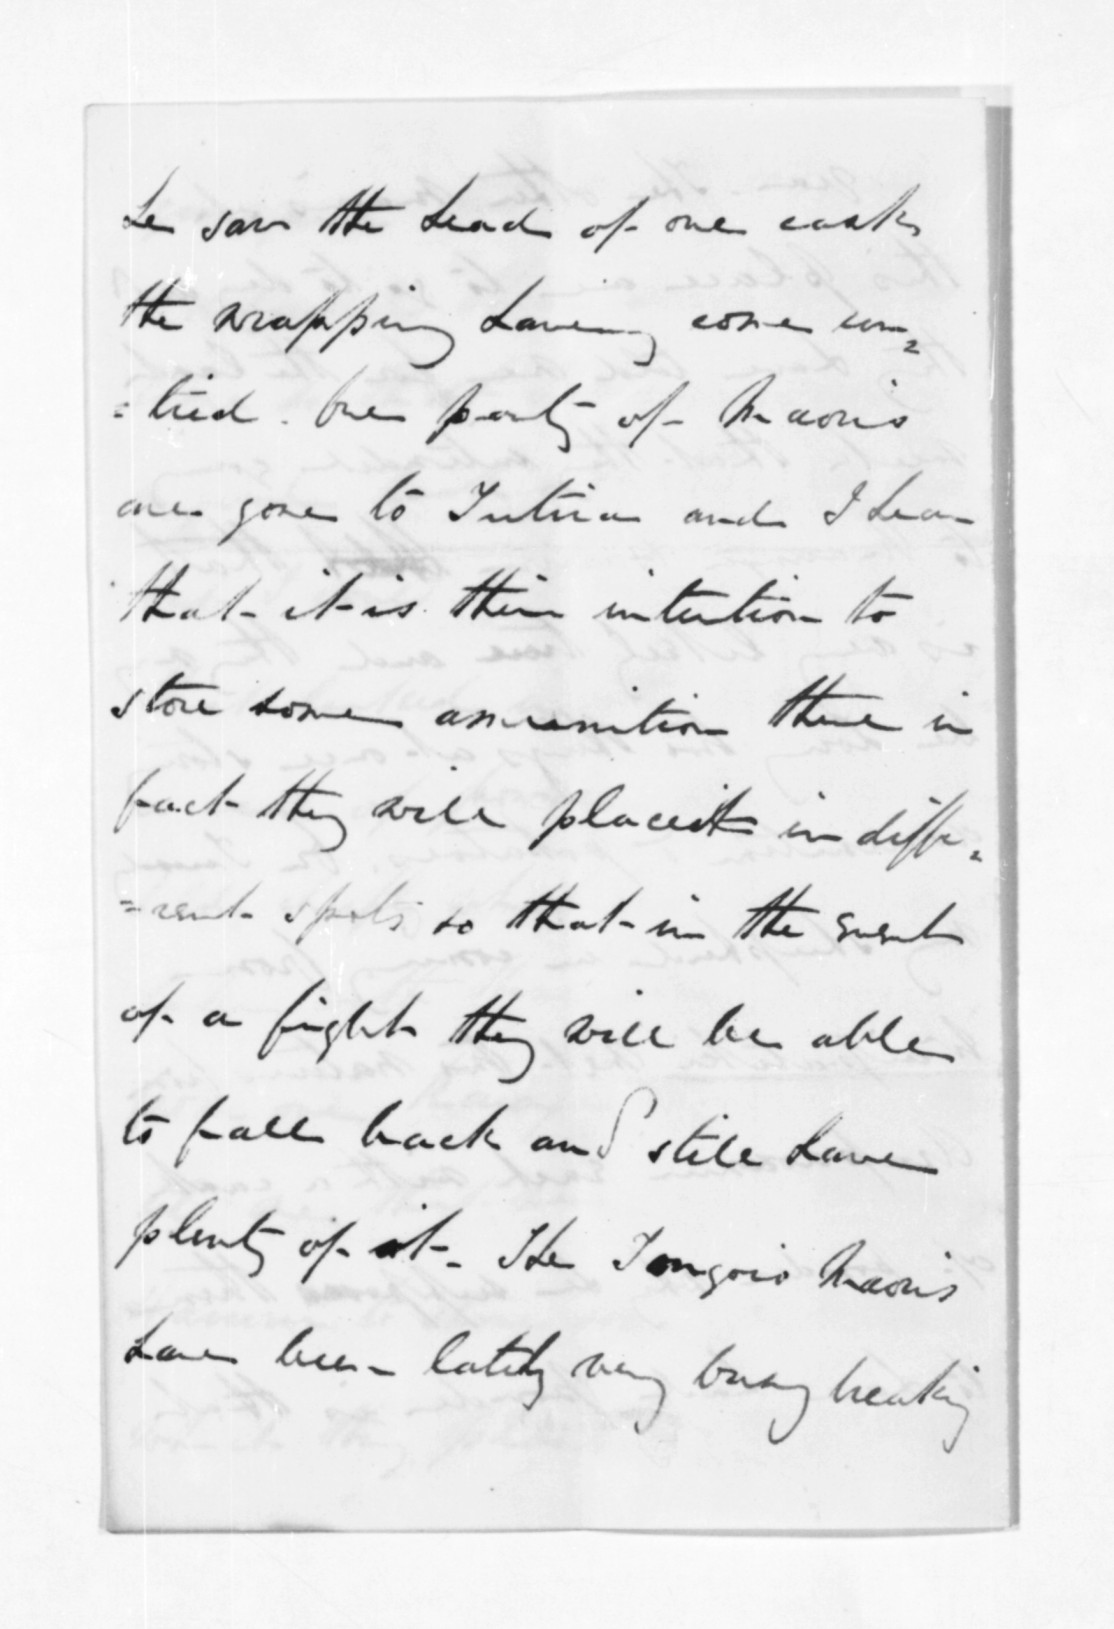 he saw the head of one cask
the wrapping having come un=
=tied. One party of Maoris
are gone to Tutira and I hear
that it is their intention to
store some ammunition there in
fact they will place it in diffe=
=rent spots so that in the event
of a fight they will be able
to fall back and still have
plenty of it. The Tongoio Maoris
have been lately very busy breaking